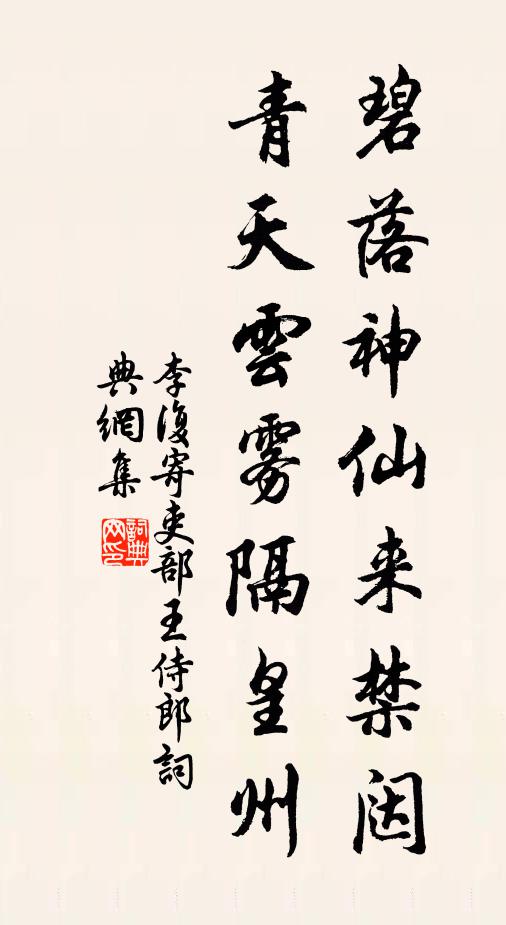 碧落神仙来禁闼
青天雲雾隔皇州
李復寄吏部王侍郎詞
典網集
詞典网印